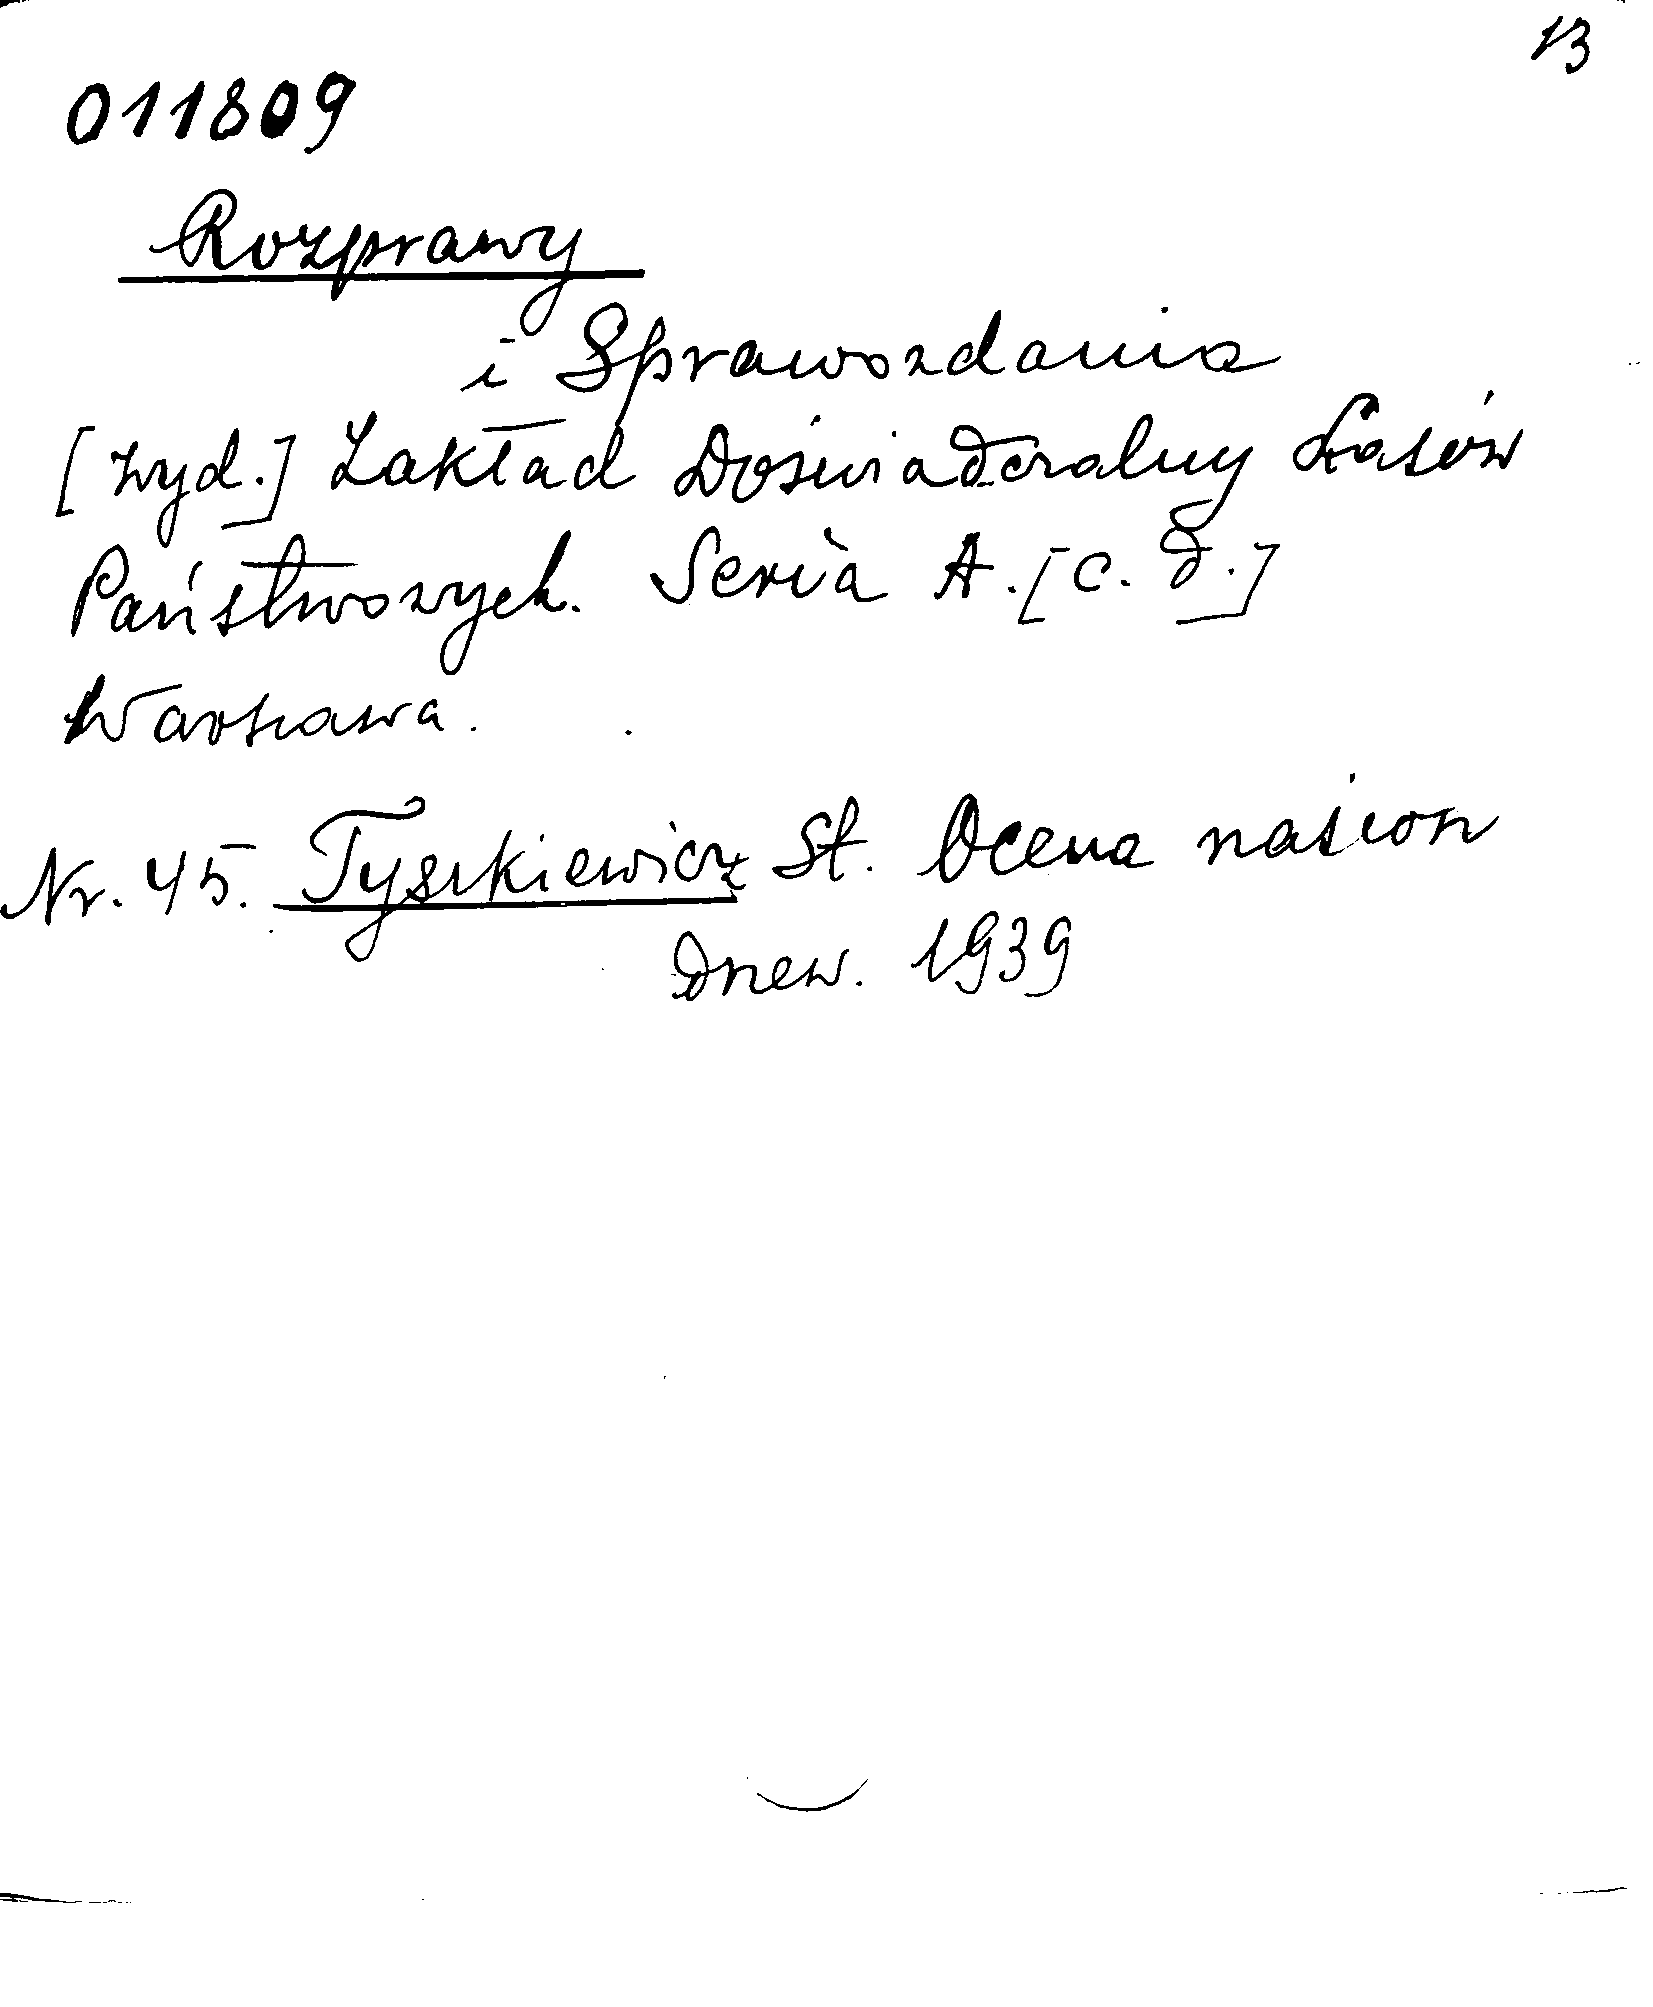 13
011809
Rozprawy
i Sprawozdania
[wyd.] Zakład Doświadczalny Lasów
Państwowych. Seria A. [c. d.]
Warszawa.
Nr. 45. Tyszkiewicz St. Ocena nasion
drzew. 1939